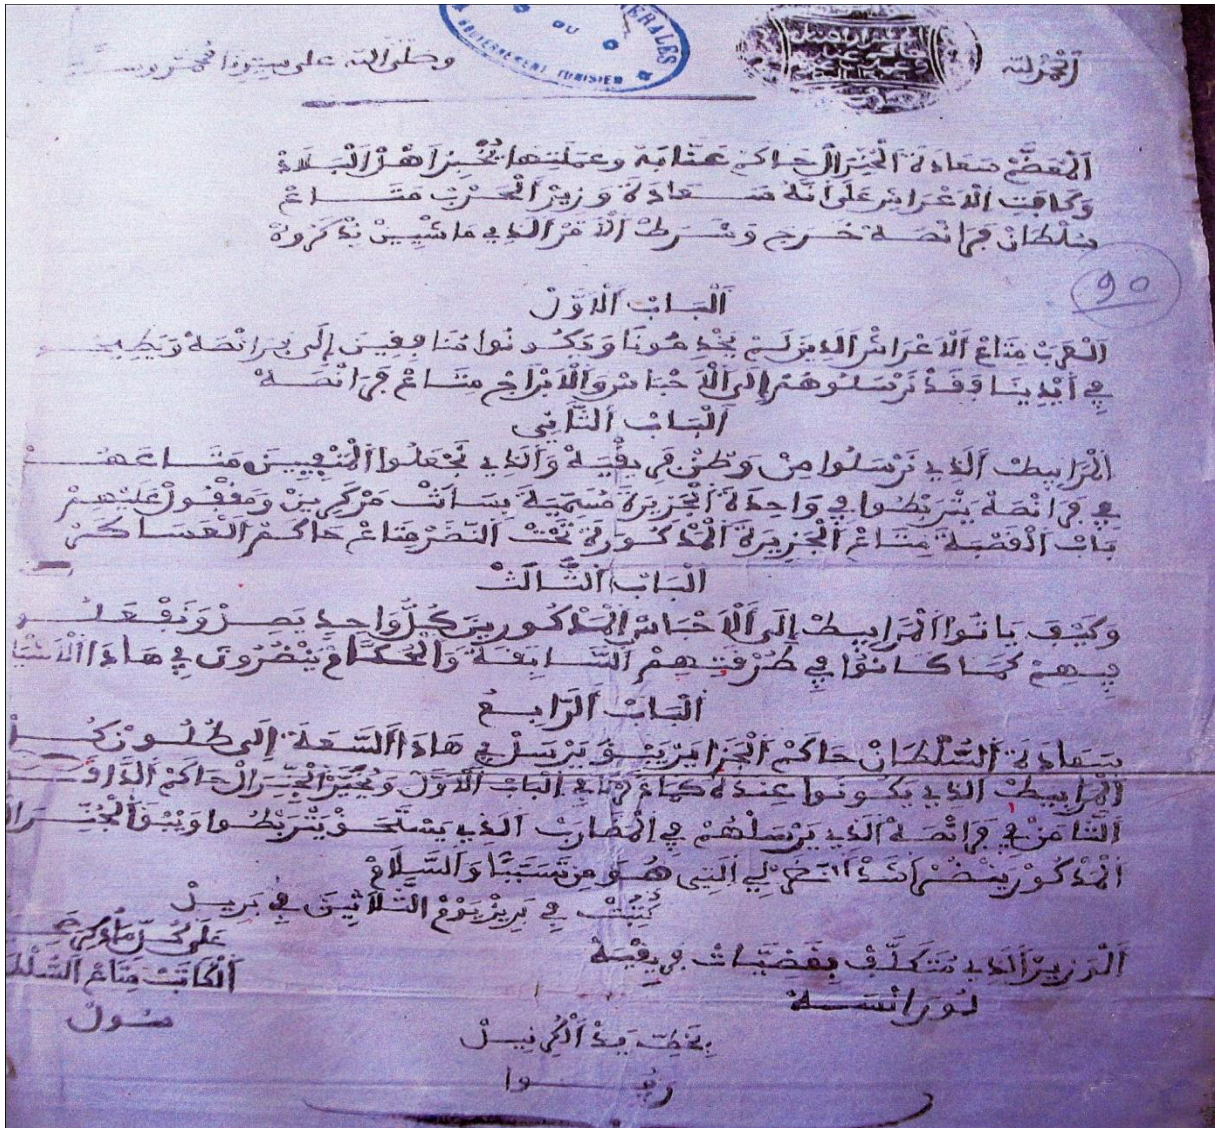 الحمد لله
وصلى الله على سيدنا محمد وسلم
المعضم سعادة الجنرال حاكم عنابة وعملتها يخبر اهل البلاد
وكافت الاعراش على أنه سعادة وزير الحرب متاع
سلطان فرانصة خرج وشرط الامر الذي ماشيين نذكروه
90
الباب الاول
العرب متاع الاعراش الذين لم يخدمونا ويكونوا منافقين إلى فرانصة ويطيحو
في أيدينا فقد نرسلوهم إلى الاحباس والابراج متاع فرانصة
الباب الثاني
المرابيط الذي نرسلوا من وطن فريقية والذي نجعلوا المنفيين متاعهم
في فرانصة يتربطوا في واحدة الجزيرة مسمية بسانت مركرين ومقفول عليهم
باب القصبة متاع الجزيرة المذكورة تحت النضر متاع حاكم العساكر
الباب الثالث
وكيف باتوا المرابيط إلى الاحباس المذكورين كل واحد يصر ونفعلو
بيهم كما كانوا في طرقتهم السابقة والحكام ينضرون في هاذا الاشيا
الباب الرابع
سعادة السلطان حاكم الجزاير يبق يرسل في هاذا السعة إلى طلون كل
المرابيط الذي يكونوا عنده كما في الباب الاول ويخبر الجنرال حاكم
الثامن في فرانصة الذي يرسلهم في المضارب الذي يستحق يتربطوا ويبق الجنرال
المذكور ينضر أشد النضر لي التي هو من تسببا والسلام
كتبت في بريز يوم الثلاثين في بريل
على كل ما ذكر
الوزير الذي متكلف بقضيات فريقية
الكاتب متاع السلطـ
لورانسة
سول
بخط يد الكرنيل